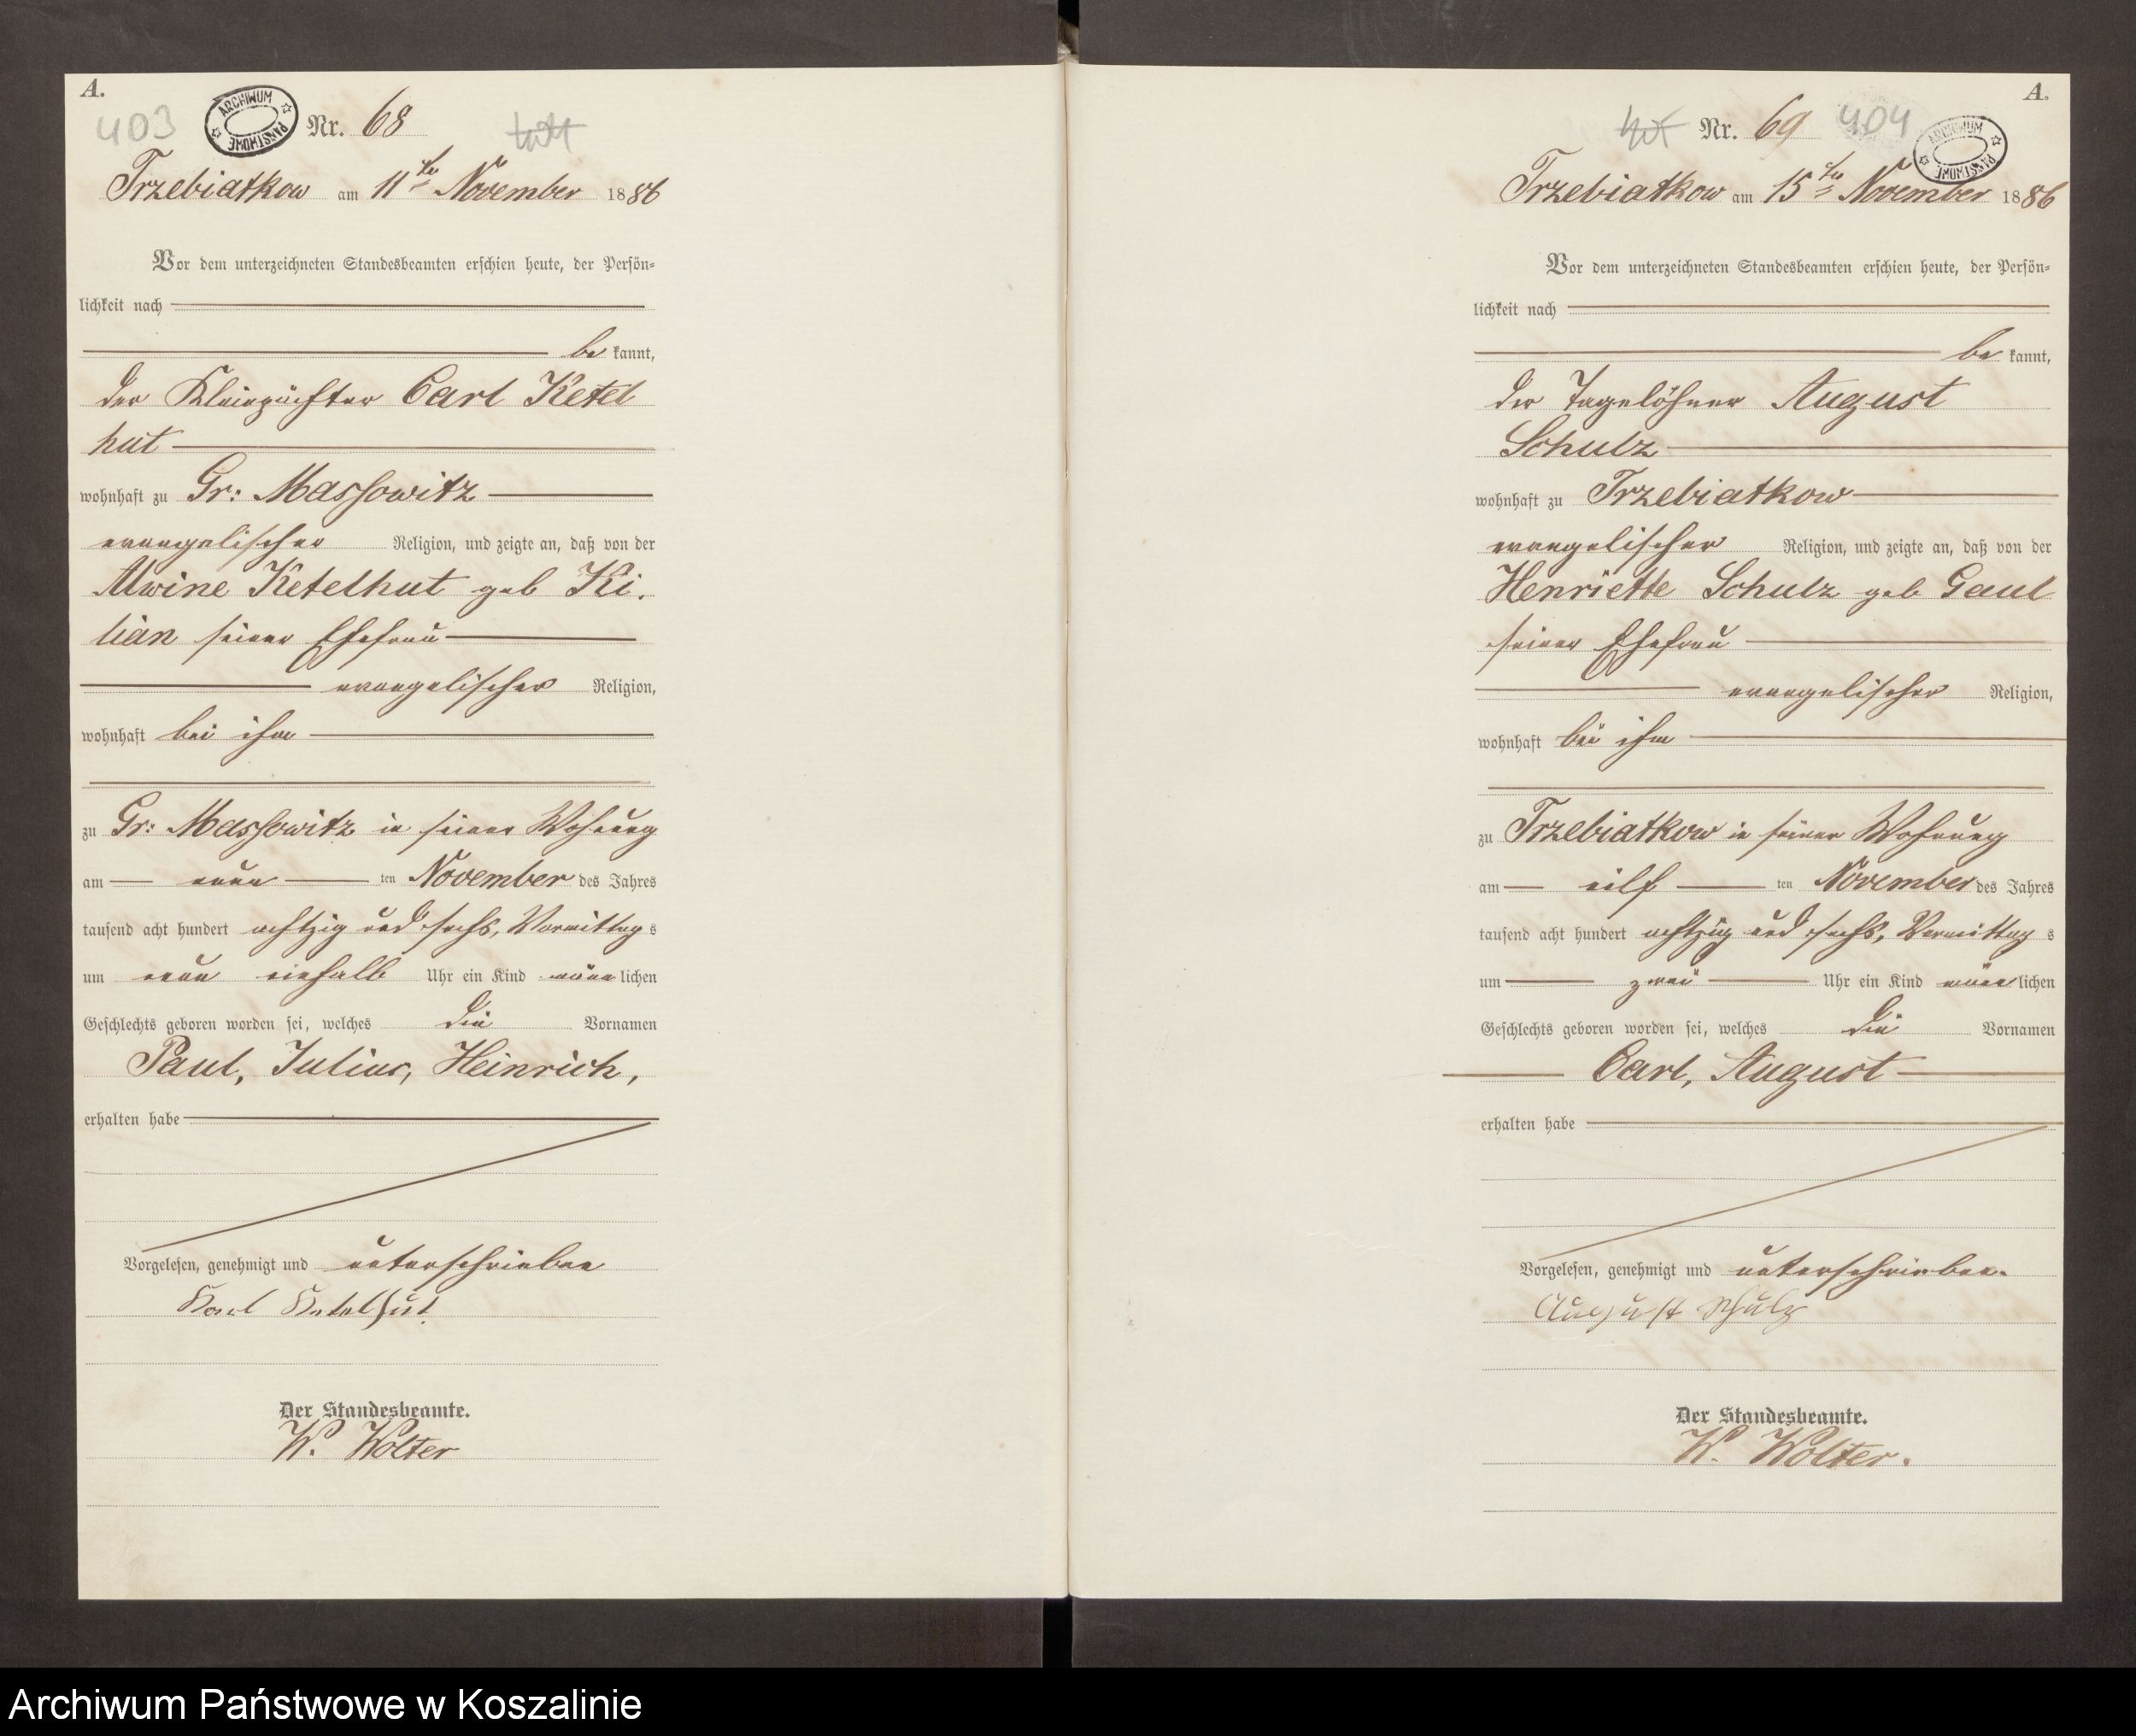 A.
403
ARCHIWUM PAŃSTWOWE
Nr. 68
Trzebiatkow am 11ten November 1886
Vor dem unterzeichneten Standesbeamten erschien heute, der Persön-
lichkeit nach
be kannt,
der Kleinpächter Carl Ketel
hut
wohnhaft zu Gr: Massowitz
evangelischer Religion, und zeigte an, daß von der
Alwine Ketelhut geb Ki.
lian seiner Ehefrau
evangelischer Religion,
wohnhaft bei ihm
zu Gr: Massowitz in seiner Wohnung
am neun ten November des Jahres
tausend acht hundert achtzig und sechs, Vormittag s
um neun einhalb Uhr ein Kind männ lichen
Geschlechts geboren worden sei, welches die Vornamen
Paul, Julius, Heinrich,
erhalten habe
Vorgelesen, genehmigt und unterschrieben
Karl Ketelhut.
Der Standesbeamte.
W. Wolter
A.
Nr. 69
404
ARCHIWUM PAŃSTWOWE
Trzebiatkow am 15ten November 1886
Vor dem unterzeichneten Standesbeamten erschien heute, der Persön-
lichkeit nach
be kannt,
der Tagelöhner August
Schulz
wohnhaft zu Trzebiatkow
evangelischer Religion, und zeigte an, daß von der
Henriette Schulz geb Gaul
seiner Ehefrau
evangelischer Religion,
wohnhaft bei ihm
zu Trzebiatkow in seiner Wohnung
am eilf ten November des Jahres
tausend acht hundert achtzig und sechs, Vormittag s
um zwei Uhr ein Kind männ lichen
Geschlechts geboren worden sei, welches die Vornamen
Carl, August
erhalten habe
Vorgelesen, genehmigt und unterschrieben.
August Schulz
Der Standesbeamte.
W. Wolter.
Archiwum Państwowe w Koszalinie